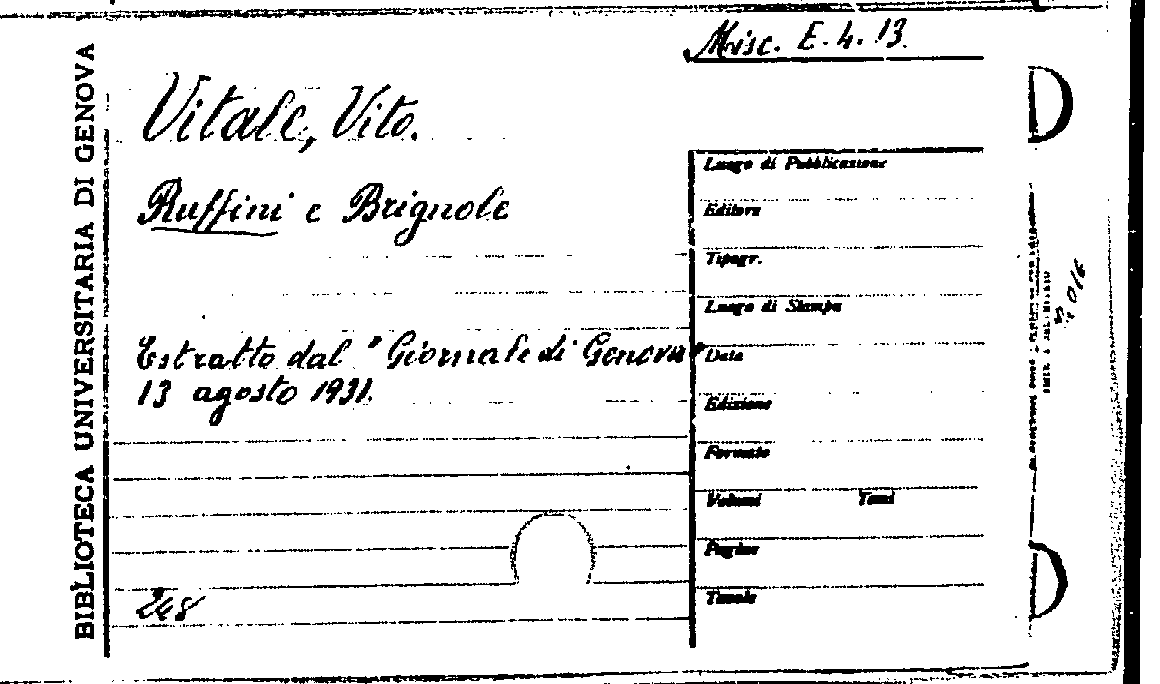 Misc. E. 4. 13.
BIBLIOTECA UNIVERSITARIA DI GENOVA
Vitale, Vito.
Ruffini e Brignole
Estratto dal "Giornale di Genova"
13 agosto 1931.
248
Luogo di Pubblicazione
Editore
Tipogr.
Luogo di Stampa
Data
Edizione
Formato
Volumi Tomi
Pagine
Tavole